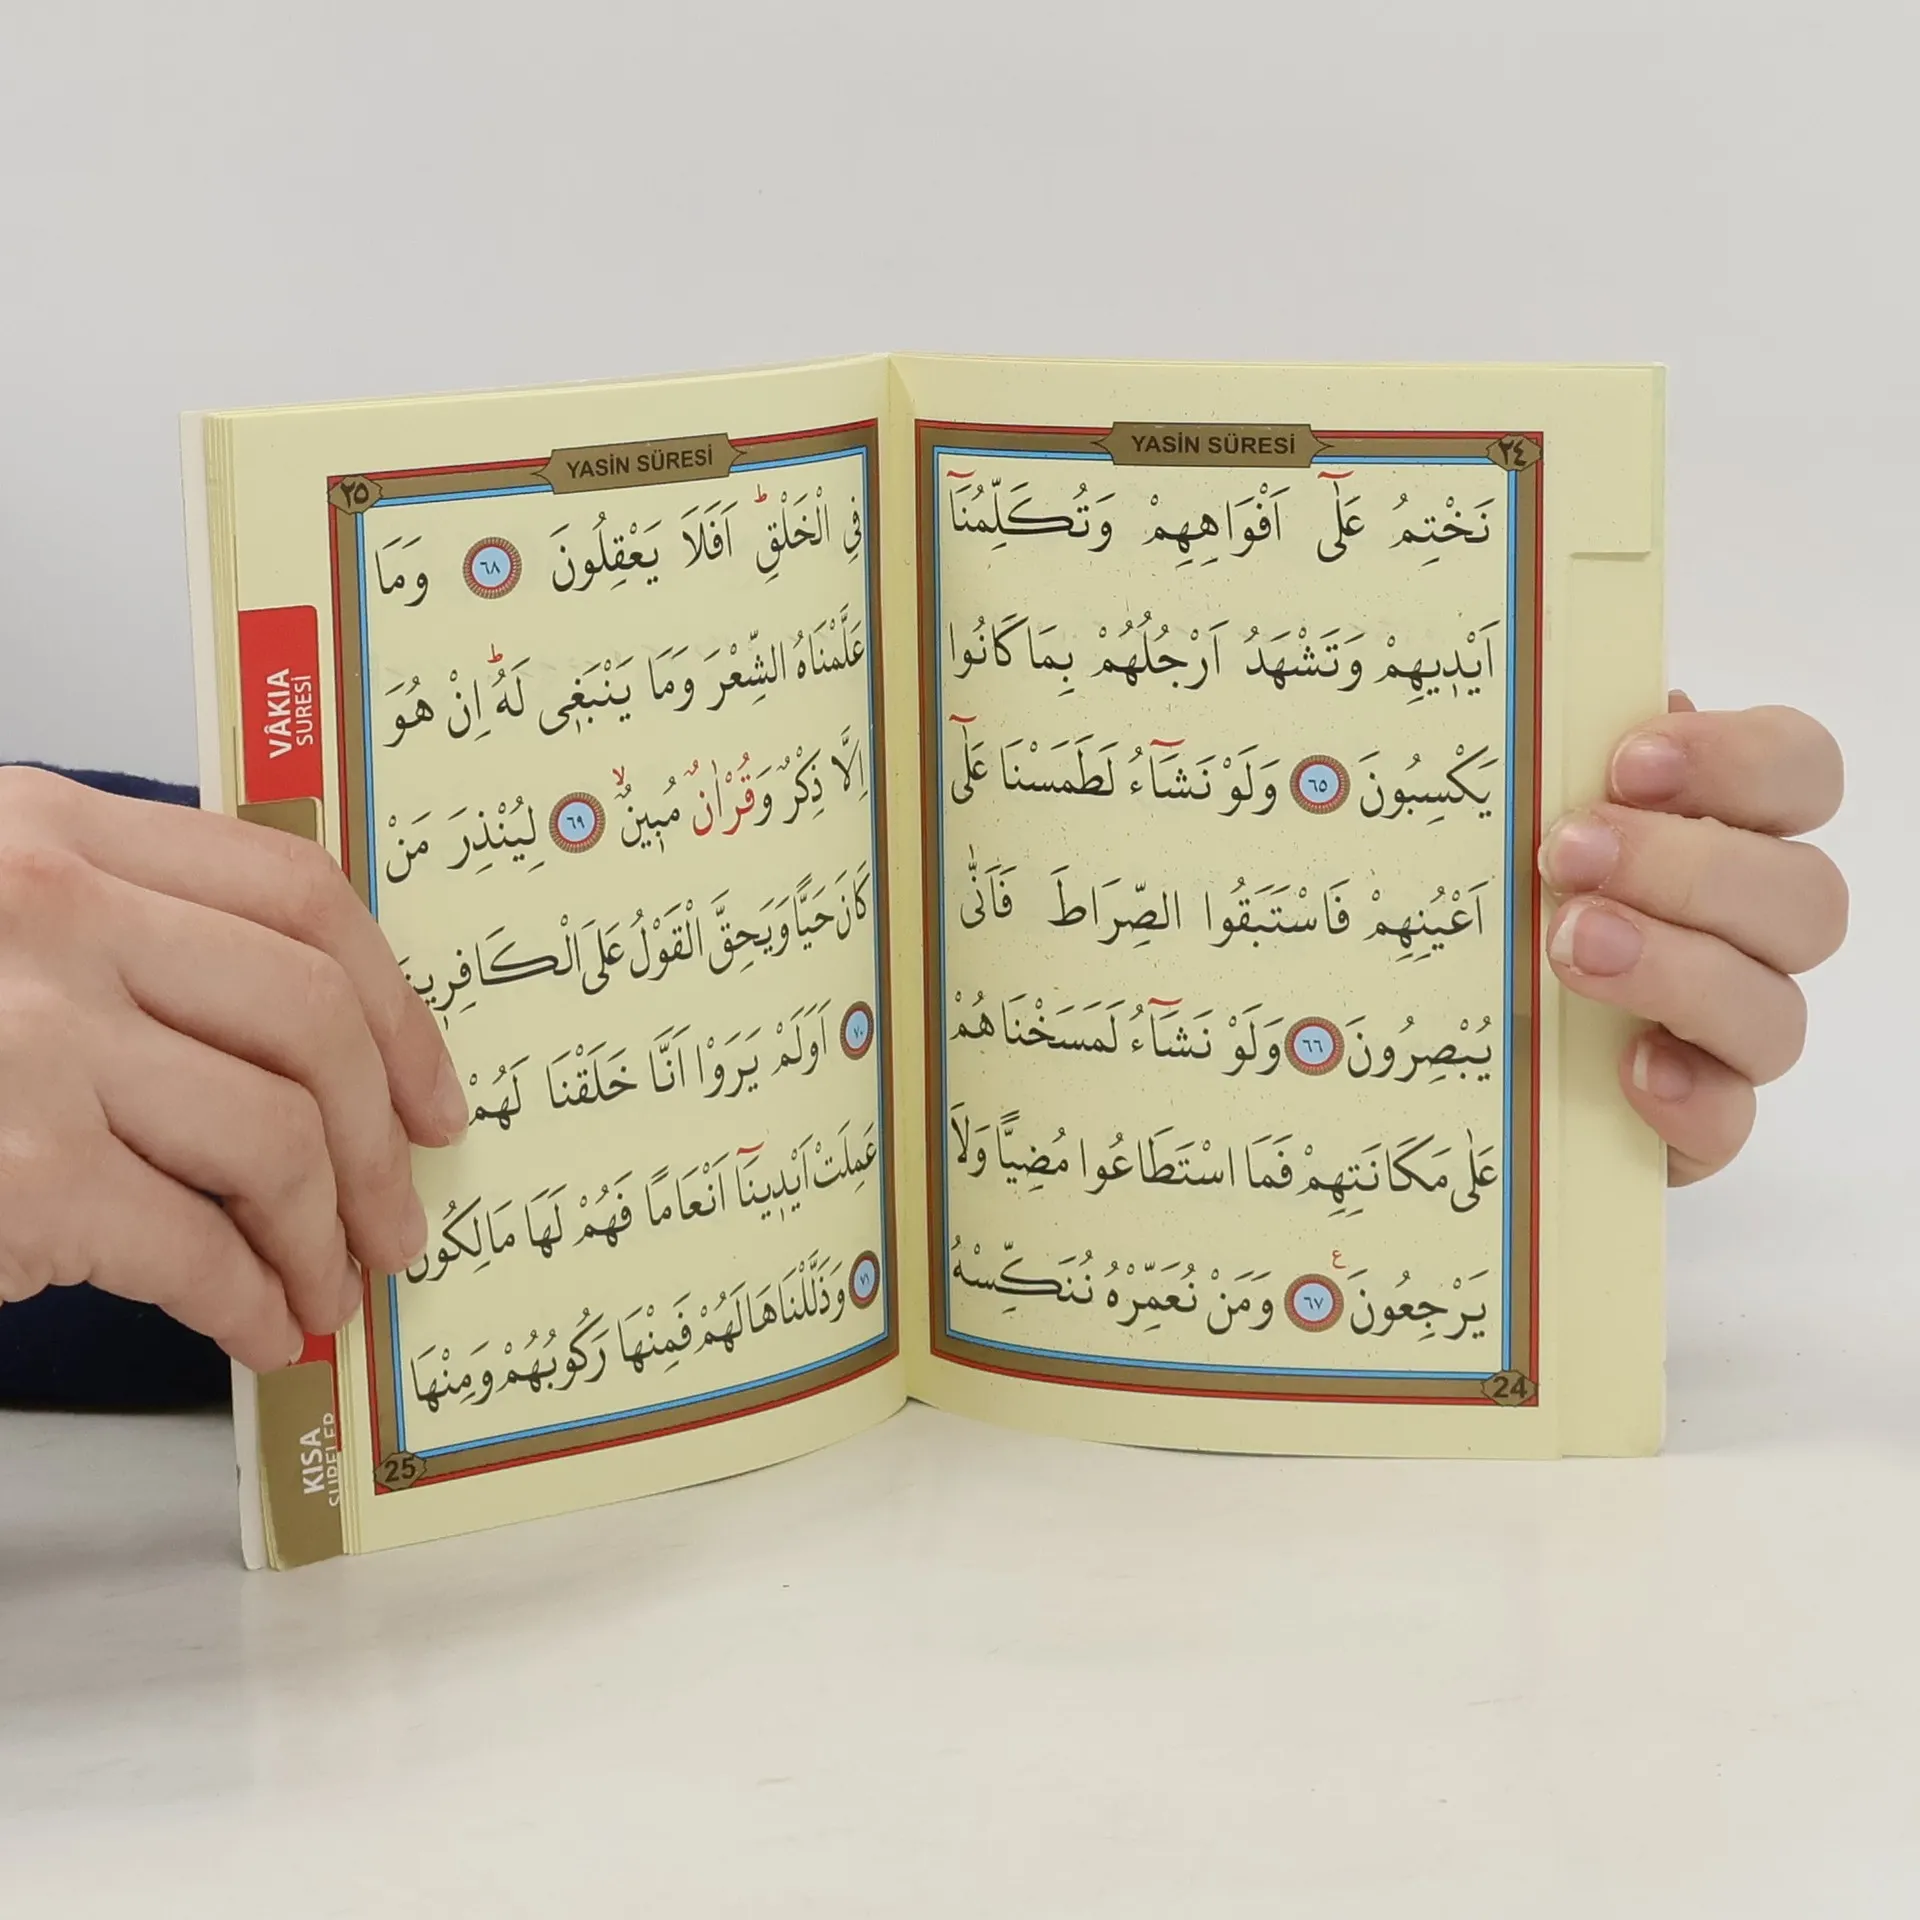 YASİN SÜRESİ
٢٤
نَخْتِمُ عَلٰٓى اَفْوَاهِهِمْ وَتُكَلِّمُنَٓا
اَيْد۪يهِمْ وَتَشْهَدُ اَرْجُلُهُمْ بِمَا كَانُوا
يَكْسِبُونَ ٦٥ وَلَوْ نَشَٓاءُ لَطَمَسْنَا عَلٰٓى
اَعْيُنِهِمْ فَاسْتَبَقُوا الصِّرَاطَ فَاَنّٰى
يُبْصِرُونَ ٦٦ وَلَوْ نَشَٓاءُ لَمَسَخْنَاهُمْ
عَلٰى مَكَانَتِهِمْ فَمَا اسْتَطَاعُوا مُضِيًّا وَلَا
يَرْجِعُونَ ع ٦٧ وَمَنْ نُعَمِّرْهُ نُنَكِّسْهُ
24
YASİN SÜRESİ
٢٥
فِي الْخَلْقِۜ اَفَلَا يَعْقِلُونَ ٦٨ وَمَا
عَلَّمْنَاهُ الشِّعْرَ وَمَا يَنْبَغ۪ي لَهُۜ اِنْ هُوَ
اِلَّا ذِكْرٌ وَقُرْاٰنٌ مُب۪ينٌۙ ٦٩ لِيُنْذِرَ مَنْ
كَانَ حَيًّا وَيَحِقَّ الْقَوْلُ عَلَى الْكَافِر۪ينَ
٧٠ اَوَلَمْ يَرَوْا اَنَّا خَلَقْنَا لَهُمْ
عَمِلَتْ اَيْد۪ينَٓا اَنْعَامًا فَهُمْ لَهَا مَالِكُونَ
٧١ وَذَلَّلْنَاهَا لَهُمْ فَمِنْهَا رَكُوبُهُمْ وَمِنْهَا
25
VÂKIA
SURESİ
KISA
SURELER